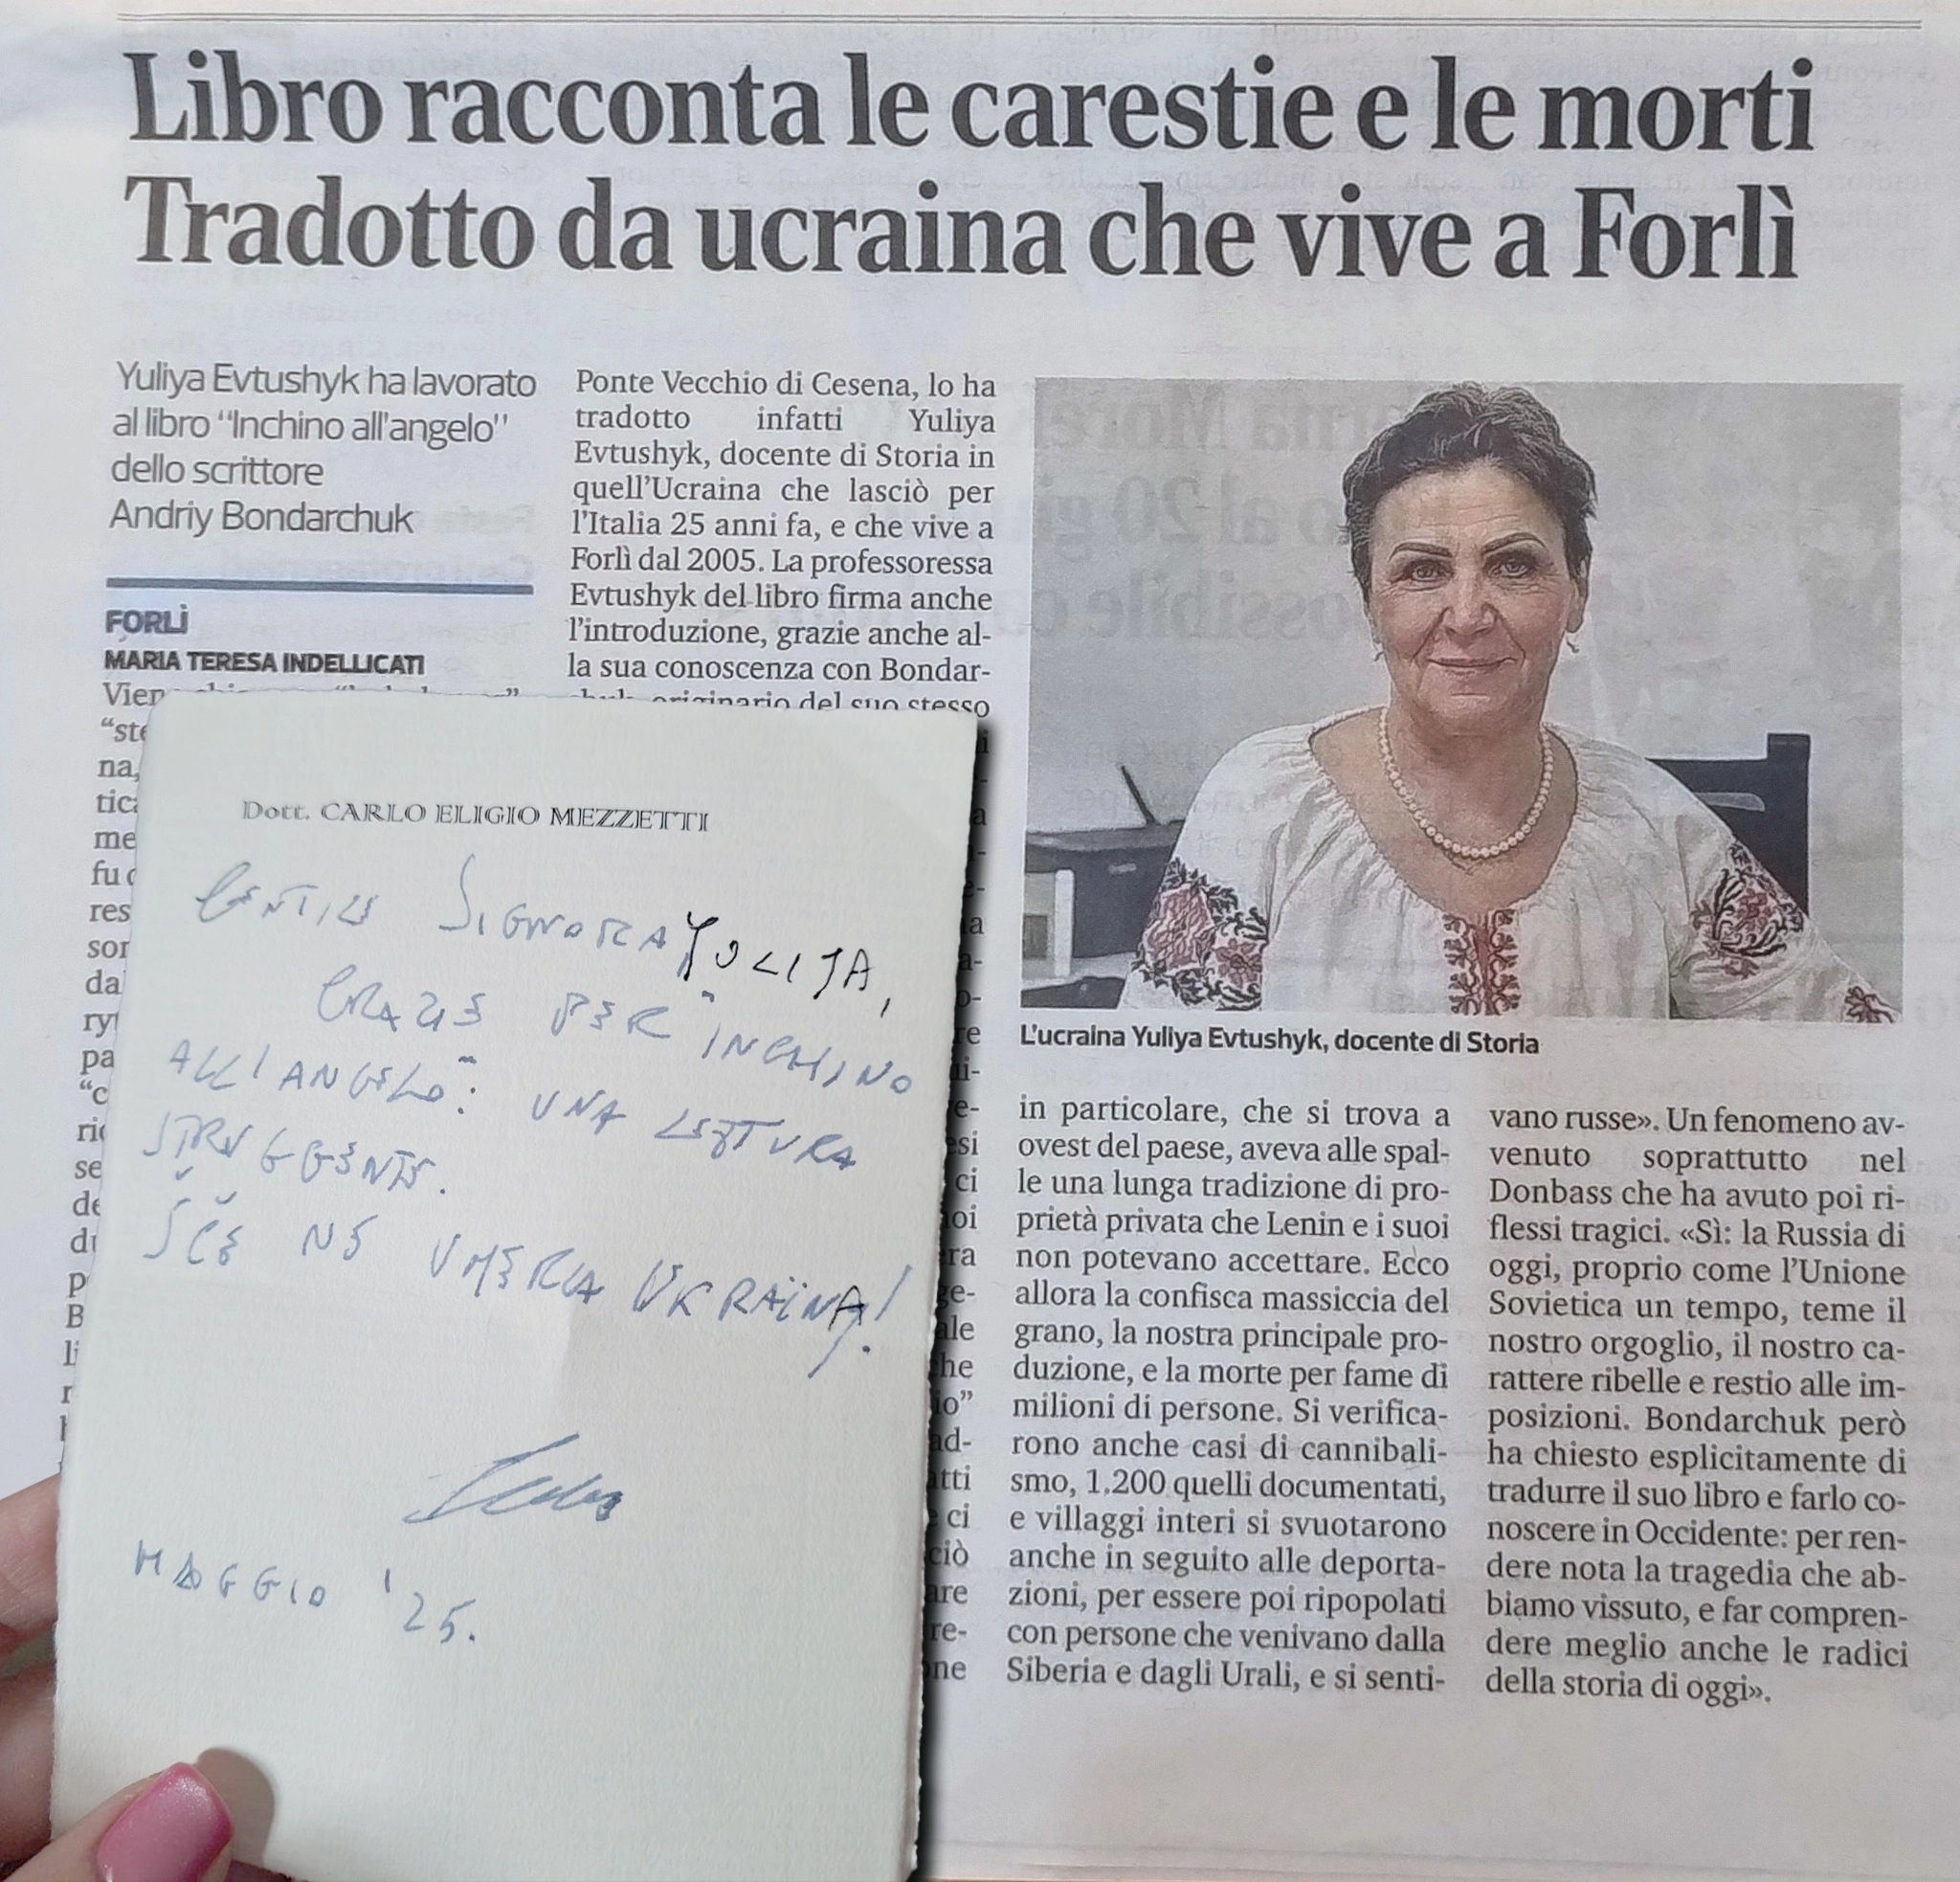 Libro racconta le carestie e le morti
Tradotto da ucraina che vive a Forlì
Yuliya Evtushyk ha lavorato
al libro “Inchino all'angelo”
dello scrittore
Andriy Bondarchuk
FORLÌ
MARIA TERESA INDELLICATI
“ste
na,
me
fu
res
sor
da
pa
“c
se
Ponte Vecchio di Cesena, lo ha
tradotto infatti Yuliya
Evtushyk, docente di Storia in
quell’Ucraina che lasciò per
l’Italia 25 anni fa, e che vive a
Forlì dal 2005. La professoressa
Evtushyk del libro firma anche
l’introduzione, grazie anche al-
la sua conoscenza con Bondar-
chuk, originario del suo stesso
L’ucraina Yuliya Evtushyk, docente di Storia
in particolare, che si trova a
ovest del paese, aveva alle spal-
le una lunga tradizione di pro-
prietà privata che Lenin e i suoi
non potevano accettare. Ecco
allora la confisca massiccia del
grano, la nostra principale pro-
duzione, e la morte per fame di
milioni di persone. Si verifica-
rono anche casi di cannibali-
smo, 1.200 quelli documentati,
e villaggi interi si svuotarono
anche in seguito alle deporta-
zioni, per essere poi ripopolati
con persone che venivano dalla
Siberia e dagli Urali, e si senti-
vano russe». Un fenomeno av-
venuto soprattutto nel
Donbass che ha avuto poi ri-
flessi tragici. «Sì: la Russia di
oggi, proprio come l’Unione
Sovietica un tempo, teme il
nostro orgoglio, il nostro ca-
rattere ribelle e restio alle im-
posizioni. Bondarchuk però
ha chiesto esplicitamente di
tradurre il suo libro e farlo co-
noscere in Occidente: per ren-
dere nota la tragedia che ab-
biamo vissuto, e far compren-
dere meglio anche le radici
della storia di oggi».
Dott. CARLO ELIGIO MEZZETTI
GENTILE SIGNORA YULIJA,
GRAZIE PER "INCHINO
ALL'ANGELO": UNA LETTURA
STRUGGENTE.
ŠČE NE VMERLA UKRAÏNA!
MAGGIO '25.